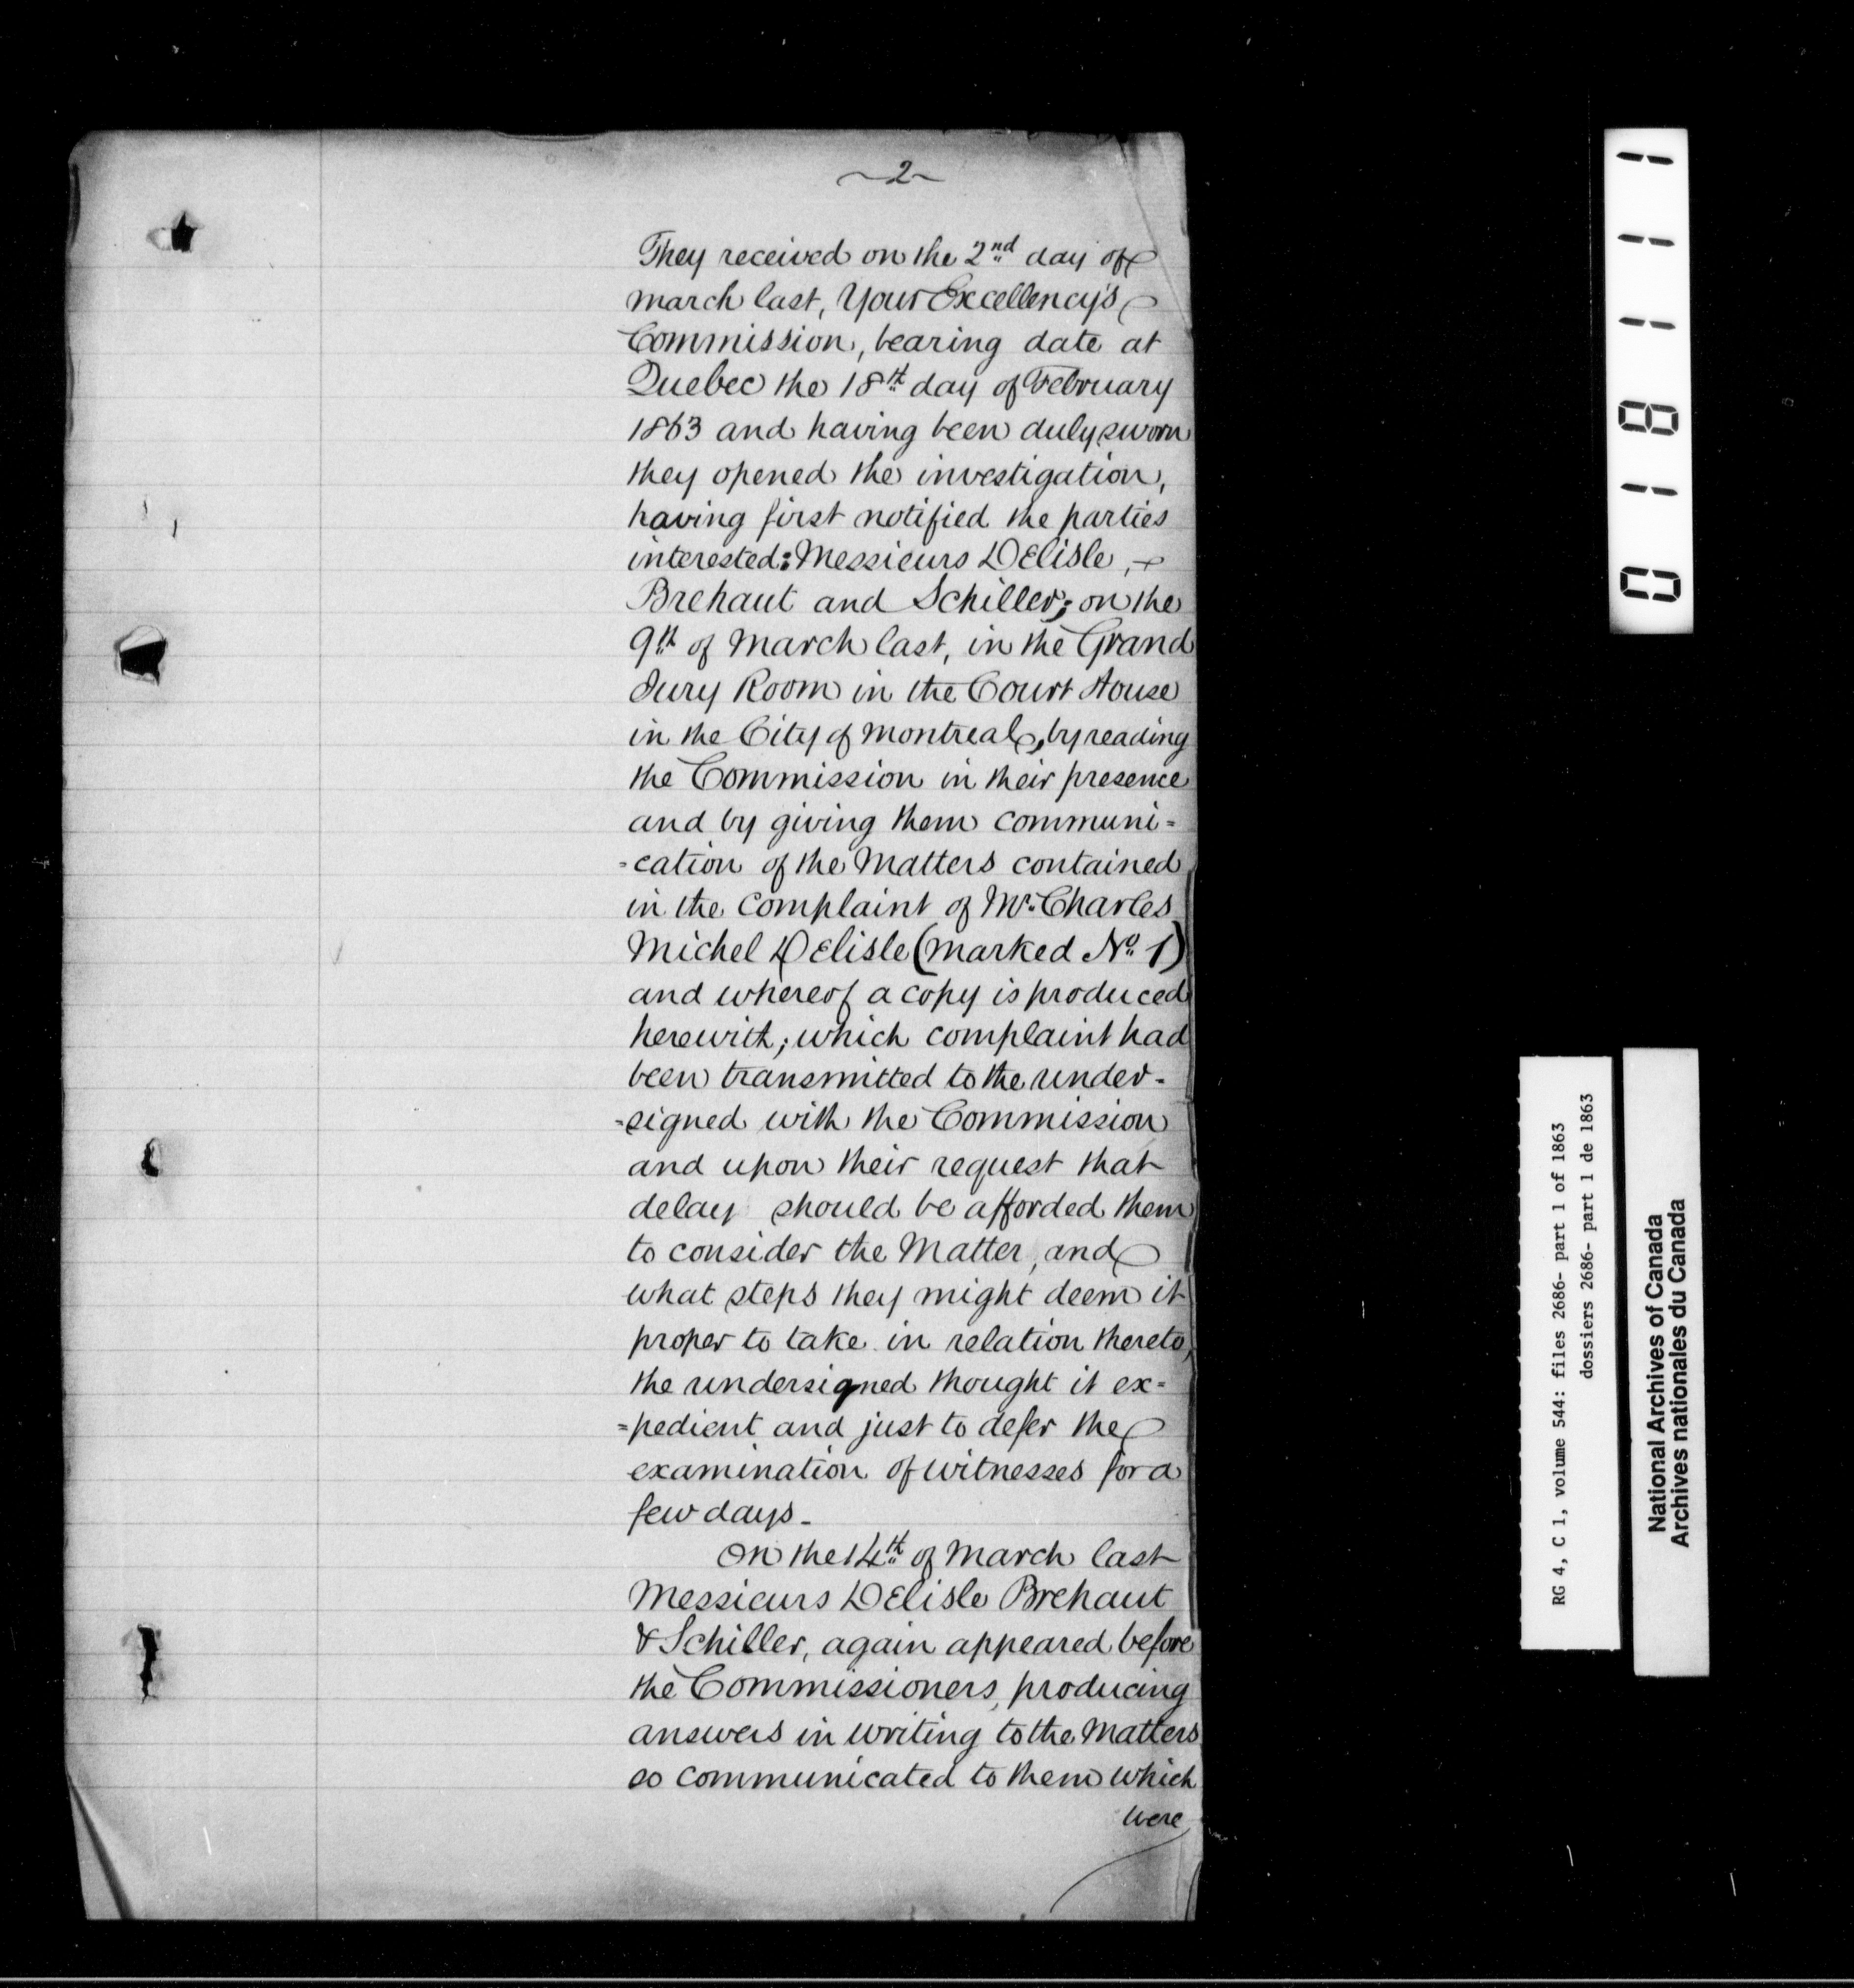 ~2~
They received on the 2nd day of
march last, Your Excellency's
Commission, bearing date at
Quebec the 18th day of February
1863 and having been duly sworn
they opened the investigation,
having first notified the parties
interested: Messieurs DElisle,
Brehaut and Schiller; on the
9th of March last, in the Grand
Jury Room in the Court House
in the City of Montreal, by reading
the Commission in their presence
and by giving them communi=
=cation of the Matters contained
in the Complaint of Mr. Charles
Michel DElisle (marked No. 1)
and whereof a copy is produced
herewith; which complaint had
been transmitted to the under-
-signed with the Commission
and upon their request that
delay should be afforded them
to consider the Matter, and
what steps they might deem it
proper to take in relation thereto,
the undersigned thought it ex=
=pedient and just to defer the
examination of witnesses for a
few days_
On the 14th of March last
Messieurs DElisle Brehaut
& Schiller, again appeared before
the Commissioners, producing
answers in writing to the Matters
so communicated to them which
were
018111
RG 4, C 1, volume 544: files 2686- part 1 of 1863
dossiers 2686- part 1 de 1863
National Archives of Canada
Archives nationales du Canada